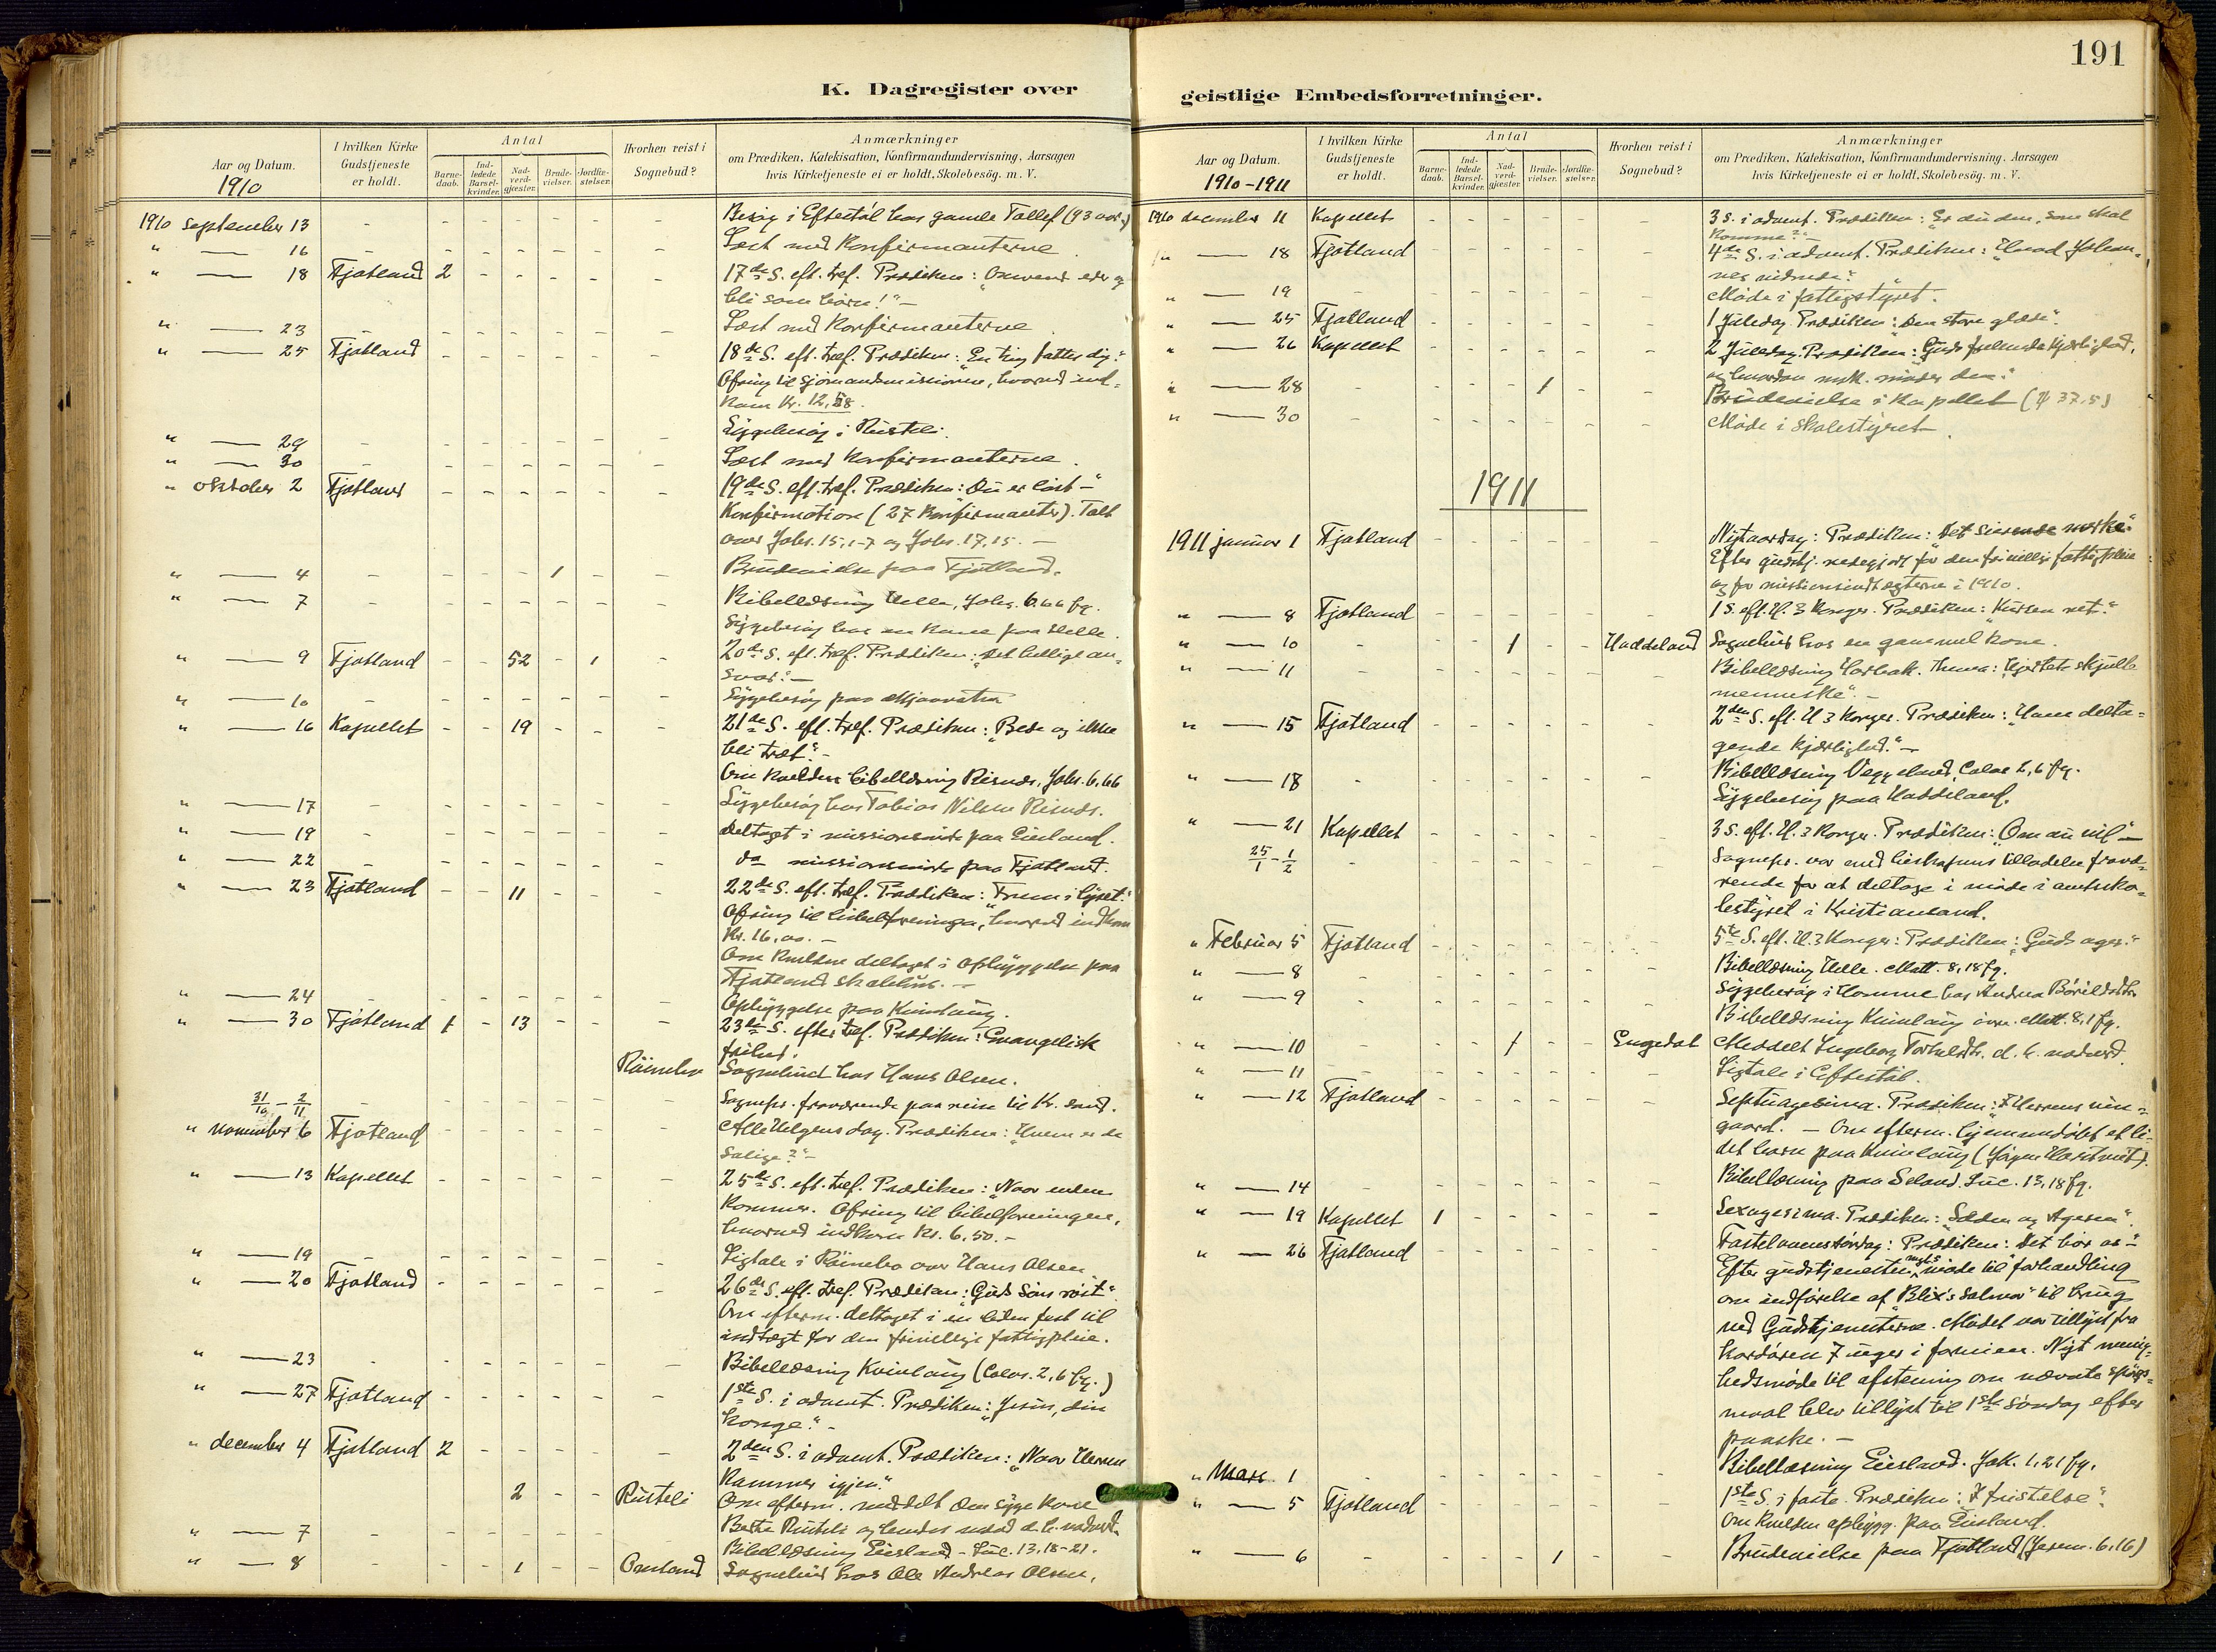 191
K. Dagregister over
Aar og Datum.
1910
I hvilken Kirke
Gudstjeneste
er holdt.
Antal
Barne-
daab.
Ind-
ledede
Barsel-
kvinder.
Nad-
verd-
gjæster.
Brude-
vielser.
Jordfæ-
stelser.
Hvorhen reist i
Sognebud?
Anmærkninger
om Prædiken, Katekisation, Konfirmandundervisning, Aarsagen
hvis Kirketjeneste ei er holdt, Skolebesög. m. V.
1910 september 13 - - - - - - - Besøg i Eftestøl hos gamle Tallef (93 aar)
" — 16 - - - - - - - Læst med Konfirmanterne
" — 18 Fjotland 2 - - - - - 17de S. eft. tref. Prædiken: "Omvend eder og
bli som børn!" -
" — 23 - - - - - - - Læst med Konfirmanterne
" — 25 Fjotland - - - - - - 18de S. eft. tref. Prædiken: "En ting fattes dig."
Ofring til sjømandsmissionen, hvorved ind-
kom Kr. 12,
" — 29 - - - - - - - Sygebesøg i Rusteli.
" — 30 - - - - - - - Læst med Konfirmanterne.
" oktober 2 Fjotland - - - - - - 19de S. eft. tref. Prædiken: Du er løst -"
Konfirmation (27 Konfirmanter). Talt
over Johs. 15,1-7 og Johs. 17,15. -
" — 4 - - - - 1 - - Brudevielse paa Fjotland.
" — 7 - - - - - - - Bibellæsning Helle, Johs. 6.66 fg.
Sygebesøg hos en kone paa Helle.
" — 9 Fjotland - - 52 - 1 - 20de S. eft. tref. Prædiken: "Det hellige an-
svar." -
" — 10 - - - - - - - Sygebesøg paa
" — 16 Kapellet - - 19 - - - 21de S. eft. tref. Prædiken: "Bede og ikke
bli træt." -
Om kvelden bibellæsning Risnes, Johs. 6,66
" — 17 - - - - - - - Sygebesøg hos Tobias Nilsen Risnes.
" — 19 - - - - - - - Deltaget i missionsmøde paa Eiesland.
" — 22 - - - - - - - do missionsmøde paa Fjotland.
" — 23 Fjotland - - 11 - - - 22de S. eft. tref. Prædiken: "Frem i lyset."
Ofring til bibelforeningen, hvorved indkom
Kr. 16,00. -
Om kvelden deltaget i opbyggelse paa
Fjotland skolehus. -
" — 24 - - - - - - - Opbyggelse paa Kvinlaug.
" — 30 Fjotland 1 - 13 - - - 23de S. efter tref. Prædiken: Evangelisk
frihed.
Røinebø Sognebud hos Hans Olsen.
31/10 - 2/11 - - - - - - - Sognepr. fraværende paa reise til Kr. sand.
" november 6 Fjotland - - - - - - Alle Helgens dag. Prædiken: "Hvem er de
salige?" -
" — 13 Kapellet - - - - - - 25de S. eft. tref. Prædiken: "Naar enden
kommer. Ofring til bibelforeningen,
hvorved indkom Kr. 6,50. -
" — 19 - - - - - - - Ligtale i Røinebø over Hans Olsen
" — 20 Fjotland - - - - - - 26de S. eft. tref. Prædiken: Guds Søns røst"
Om efterm. deltaget i en liden fest til
indtægt for den frivillige fattigpleie.
" — 23 - - - - - - - Bibellæsning Kvinlaug (Colos. 2,6 fg.)
" — 27 Fjotland - - - - - - 1ste S. i advent. Prædiken: "Jesus, din
konge." -
" december 4 Fjotland 2 - - - - - 2den S. i advent. Prædiken: "Naar Herren
kommer igjen."
2 - - Rusteli Om efterm. meddelt den syge kone
Berte Rusteli og hendes mand d. h. nadverd.
" — 7 - - - - - - - Bibellæsning Eiesland - Luc. 13,18-21.
" — 8 - - - 1 - - Omland Sognebud hos Ole Andreas Olsen.
geistlige Embedsforretninger.
Aar og Datum.
1910-1911
I hvilken Kirke
Gudstjeneste
er holdt.
Antal
Barne-
daab.
Ind-
ledede
Barsel-
kvinder.
Nad-
verd-
gjæster.
Brude-
vielser.
Jordfæ-
stelser.
Hvorhen reist i
Sognebud?
Anmærkninger
om Prædiken, Katekisation, Konfirmandundervisning, Aarsagen
hvis Kirketjeneste ei er holdt, Skolebesög. m. V.
1910 december 11 Kapellet - - - - - - 3 S. i advent. Prædiken: "Er du den, som skal
komme?" -
" — 18 Fjotland - - - - - - 4de S. i advent. Prædiken: "Hvad Johan-
nes vidnede."
" — 19 - - - - - - - Møde i fattigstyret.
" — 25 Fjotland - - - - - - 1 Juledag. Prædiken: "Den store glæde".
" — 26 Kapellet - - - - - - 2 Juledag. Prædiken: "Guds frelsende kjærlighed,
og hvordan msk. møder den."
" — 28 - - - - 1 - - Brudevielse i Kapellet (ψ 37.5)
" — 30 - - - - - - - Møde i skolestyret.
1911
1911 januar 1 Fjotland - - - - - - Nytaarsdag: Prædiken: "Det seirende merke."
Efter gudstj. redegjort for den frivillige fattigpleie
og for missionsindtægterne i 1910.
" — 8 Fjotland - - - - - - 1 S. eft. H. 3 Konger. Prædiken: "Kursen ret."
" — 10 - - - 1 - - Haddeland Sognebud hos en gammel kone.
" — 11 - - - - - - - Bibellæsning Thema: "Hjertets skjulte
menneske". -
" — 15 Fjotland - - - - - - 2den S. eft. H 3 Konger. Prædiken: "Hans delta-
gende kjærlighed." -
" — 18 - - - - - - - Bibellæsning Veggeland, Colos 2,6 fg.
Sygebesøg paa Haddeland.
" — 21 Kapellet - - - - - - 3 S. eft. H. 3 Konger. Prædiken: "Om du vil" -
25/1 - 1/2 - - - - - - - Sognepr. var med biskopens tilladelse fravæ-
rende for at deltage i møde i amtssko-
lestyret i Kristiansand.
" Februar 5 Fjotland - - - - - - 5te S. eft. H. 3 Konger: Prædiken: "Guds ager."
" — 8 - - - - - - - Bibellæsning Helle. Matt. 8,18 fg.
" — 9 - - - - - - - Sygebesøg i Homme hos Andrea
Bibellæsning Kvinlaug øvre. Matt. 8,1 fg.
" — 10 - - - 1 - - Engedal Meddelt Ingeborg d. h. nadverd.
" — 11 - - - - - - - Ligtale i Eftestøl.
" — 12 Fjotland - - - - - - Septuagesima. Prædiken: "I Herrens vin-
gaard. - Om efterm. hjemmedøbt et li-
det barn paa Kvinlaug
" — 14 - - - - - - - Bibellæsning paa Seland. Luc. 13,18 fg.
" — 19 Kapellet 1 - - - - - Sexagesima. Prædiken: "Sæden og Ageren".
" — 26 Fjotland - - - - - - Fastelavenssøndag: Prædiken: Det bør os -"
Efter gudstjenesten møde til forhandling
om indførelse af "Blix's salmer" til brug
ved Gudstjenesterne. Mødet var tillyst fra
kordøren 7 uger i forveien. Nyt menig-
hedsmøde til afstening om nævnte spørgs-
maal blev tillyst til 1ste søndag efter
paaske. -
" Mars 1 - - - - - - - Bibellæsning Eiesland. Jak. 1,21 fg.
" — 5 Fjotland - - - - - - 1ste S. i faste. Prædiken: "I fristelse".
Om kvelden opbygg. paa Eiesland.
" — 6 - - - - 1 - - Brudevielse paa Fjotland (Jerem. 6,16)